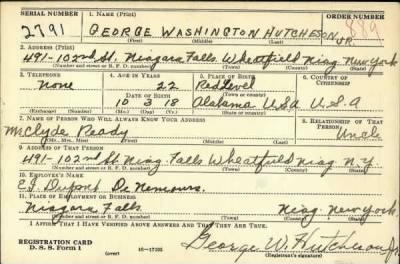 SERIAL NUMBER 1. NAME (Print) ORDER NUMBER
2791 GEORGE WASHINGTON HUTCHESON JR.
(First) (Middle) (Last)
2. ADDRESS (Print)
491-102nd St. Niagara Falls Wheatfield Niag. New York
(Number and street or R. F. D. number) (Town) (County) (State)
3. TELEPHONE 4. AGE IN YEARS 5. PLACE OF BIRTH 6. COUNTRY OF CITIZENSHIP
None 22 Red Level
DATE OF BIRTH (Town or county)
10 3 18 Alabama USA U.S.A
(Exchange) (Number) (Mo.) (Day) (Yr.) (State or country)
7. NAME OF PERSON WHO WILL ALWAYS KNOW YOUR ADDRESS 8. RELATIONSHIP OF THAT PERSON
Mr Clyde Ready Uncle
(Mr., Mrs., Miss) (First) (Middle) (Last)
9. ADDRESS OF THAT PERSON
491-102nd St. Niag. Falls Wheatfield Niag N.Y
(Number and street or R. F. D. number) (Town) (County) (State)
10. EMPLOYER'S NAME
E.I. Dupont De Nemours.
11. PLACE OF EMPLOYMENT OR BUSINESS
Niagara Falls Niag. New York.
(Number and street or R. F. D. number) (Town) (County) (State)
I AFFIRM THAT I HAVE VERIFIED ABOVE ANSWERS AND THAT THEY ARE TRUE.
REGISTRATION CARD
D. S. S. Form 1 (over) 16-17105 George W. Hutcheson Jr.
(Registrant's signature)